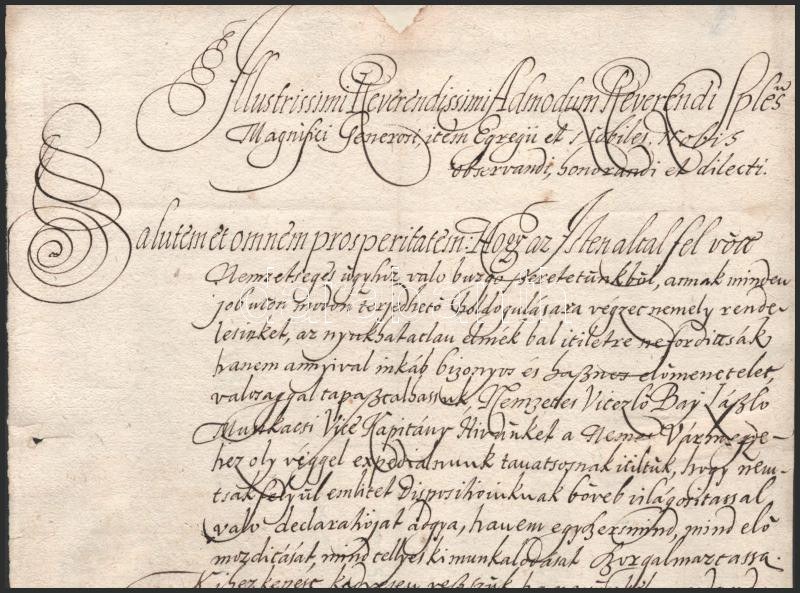 Illustrissimi Reverendissimi Admodum Reverendi Sples
Magnifici Generosi, item Egregii et Nobiles. Nobis
observandi, honorandi et dilecti.
Salutem et omnem prosperitatem. Hogy az Isten altal fel vött
Nemzetseges ügyhöz valo buzgo szeretetünkböl, annak minden
job uton modon terjedhetö boldogulására végzet nemely rende-
lesinket, az nyukhatatlan elmék bal itiletre ne fordittsák
hanem annyival inkáb bizonyos és hasznos elömenetelet,
valosággal tapasztalhassuk, Nemzetes Vitezlö Bay László
Munkacsi Vice Kapitány Hivünket a Nemes Vármegye-
hez oly véggel expedialnunk tavatsosnak itiltük, hogy nem-
tsak felyül emlitet Dispositioinknak böveb világositassal
valo declaratioját adgya, hanem egyszersmind, mind elö
mozditását, mind tellyes ki munkalodását szorgalmaztassa.
Kihez kepest